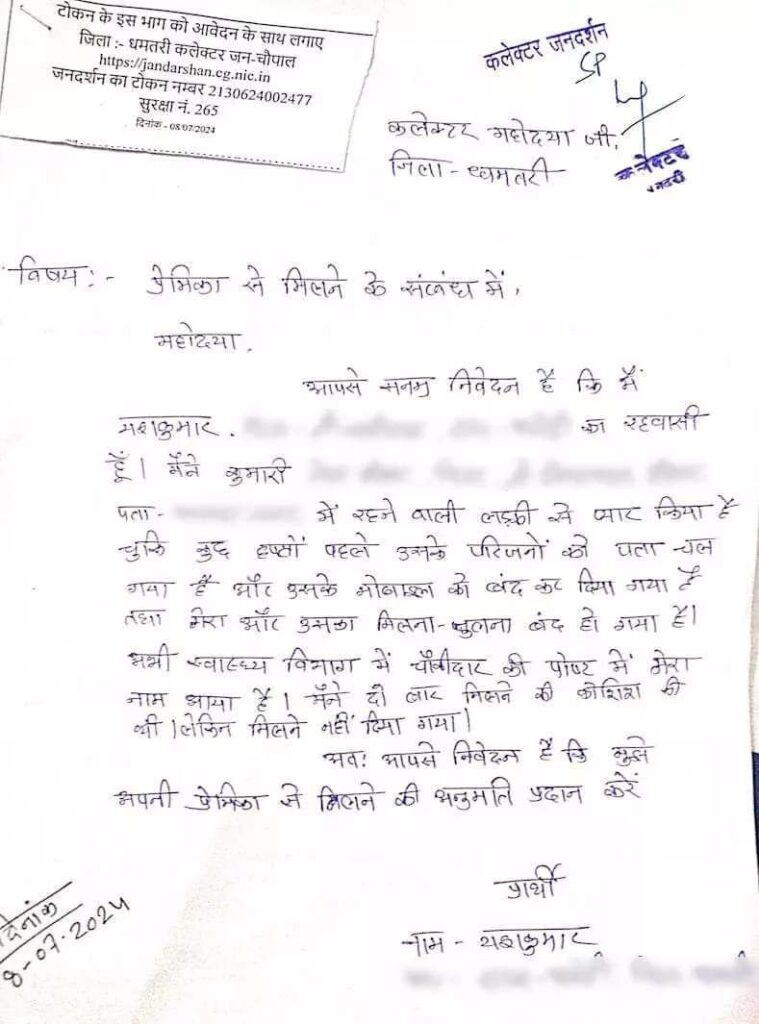 टोकन के इस भाग को आवेदन के साथ लगाए
जिला :- धमतरी कलेक्टर जन-चौपाल
https://jandarshan.cg.nic.in
जनदर्शन का टोकन नम्बर 2130624002477
सुरक्षा नं. 265
दिनांक - 08/07/2024
कलेक्टर जनदर्शन
SP
कलेक्टर महोदया जी,
जिला - धमतरी
विषय :- प्रेमिका से मिलने के संबंध में,
महोदया,
आपसे सनम्र निवेदन है कि मैं
यशकुमार. का रहवासी
हूँ। मैंने कुमारी
पता - में रहने वाली लड़की से प्यार किया है
चुकि कुछ हप्तों पहले उसके परिजनों को पता चल
गया है और उसके मोबाइल को बंद कर दिया गया है
तथा मेरा और उसका मिलना-जुलना बंद हो गया है।
अभी स्वास्थ्य विभाग में चौकीदार की पोस्ट में मेरा
नाम आया है। मैंने दो बार मिलने की कोशिश की
थी। लेकिन मिलने नहीं दिया गया।
अतः आपसे निवेदन है कि मुझे
अपनी प्रेमिका से मिलने की अनुमति प्रदान करें
प्रार्थी
नाम - यशकुमार
दिनांक
8-07-2024